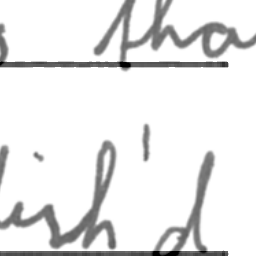 s tha
lish'd